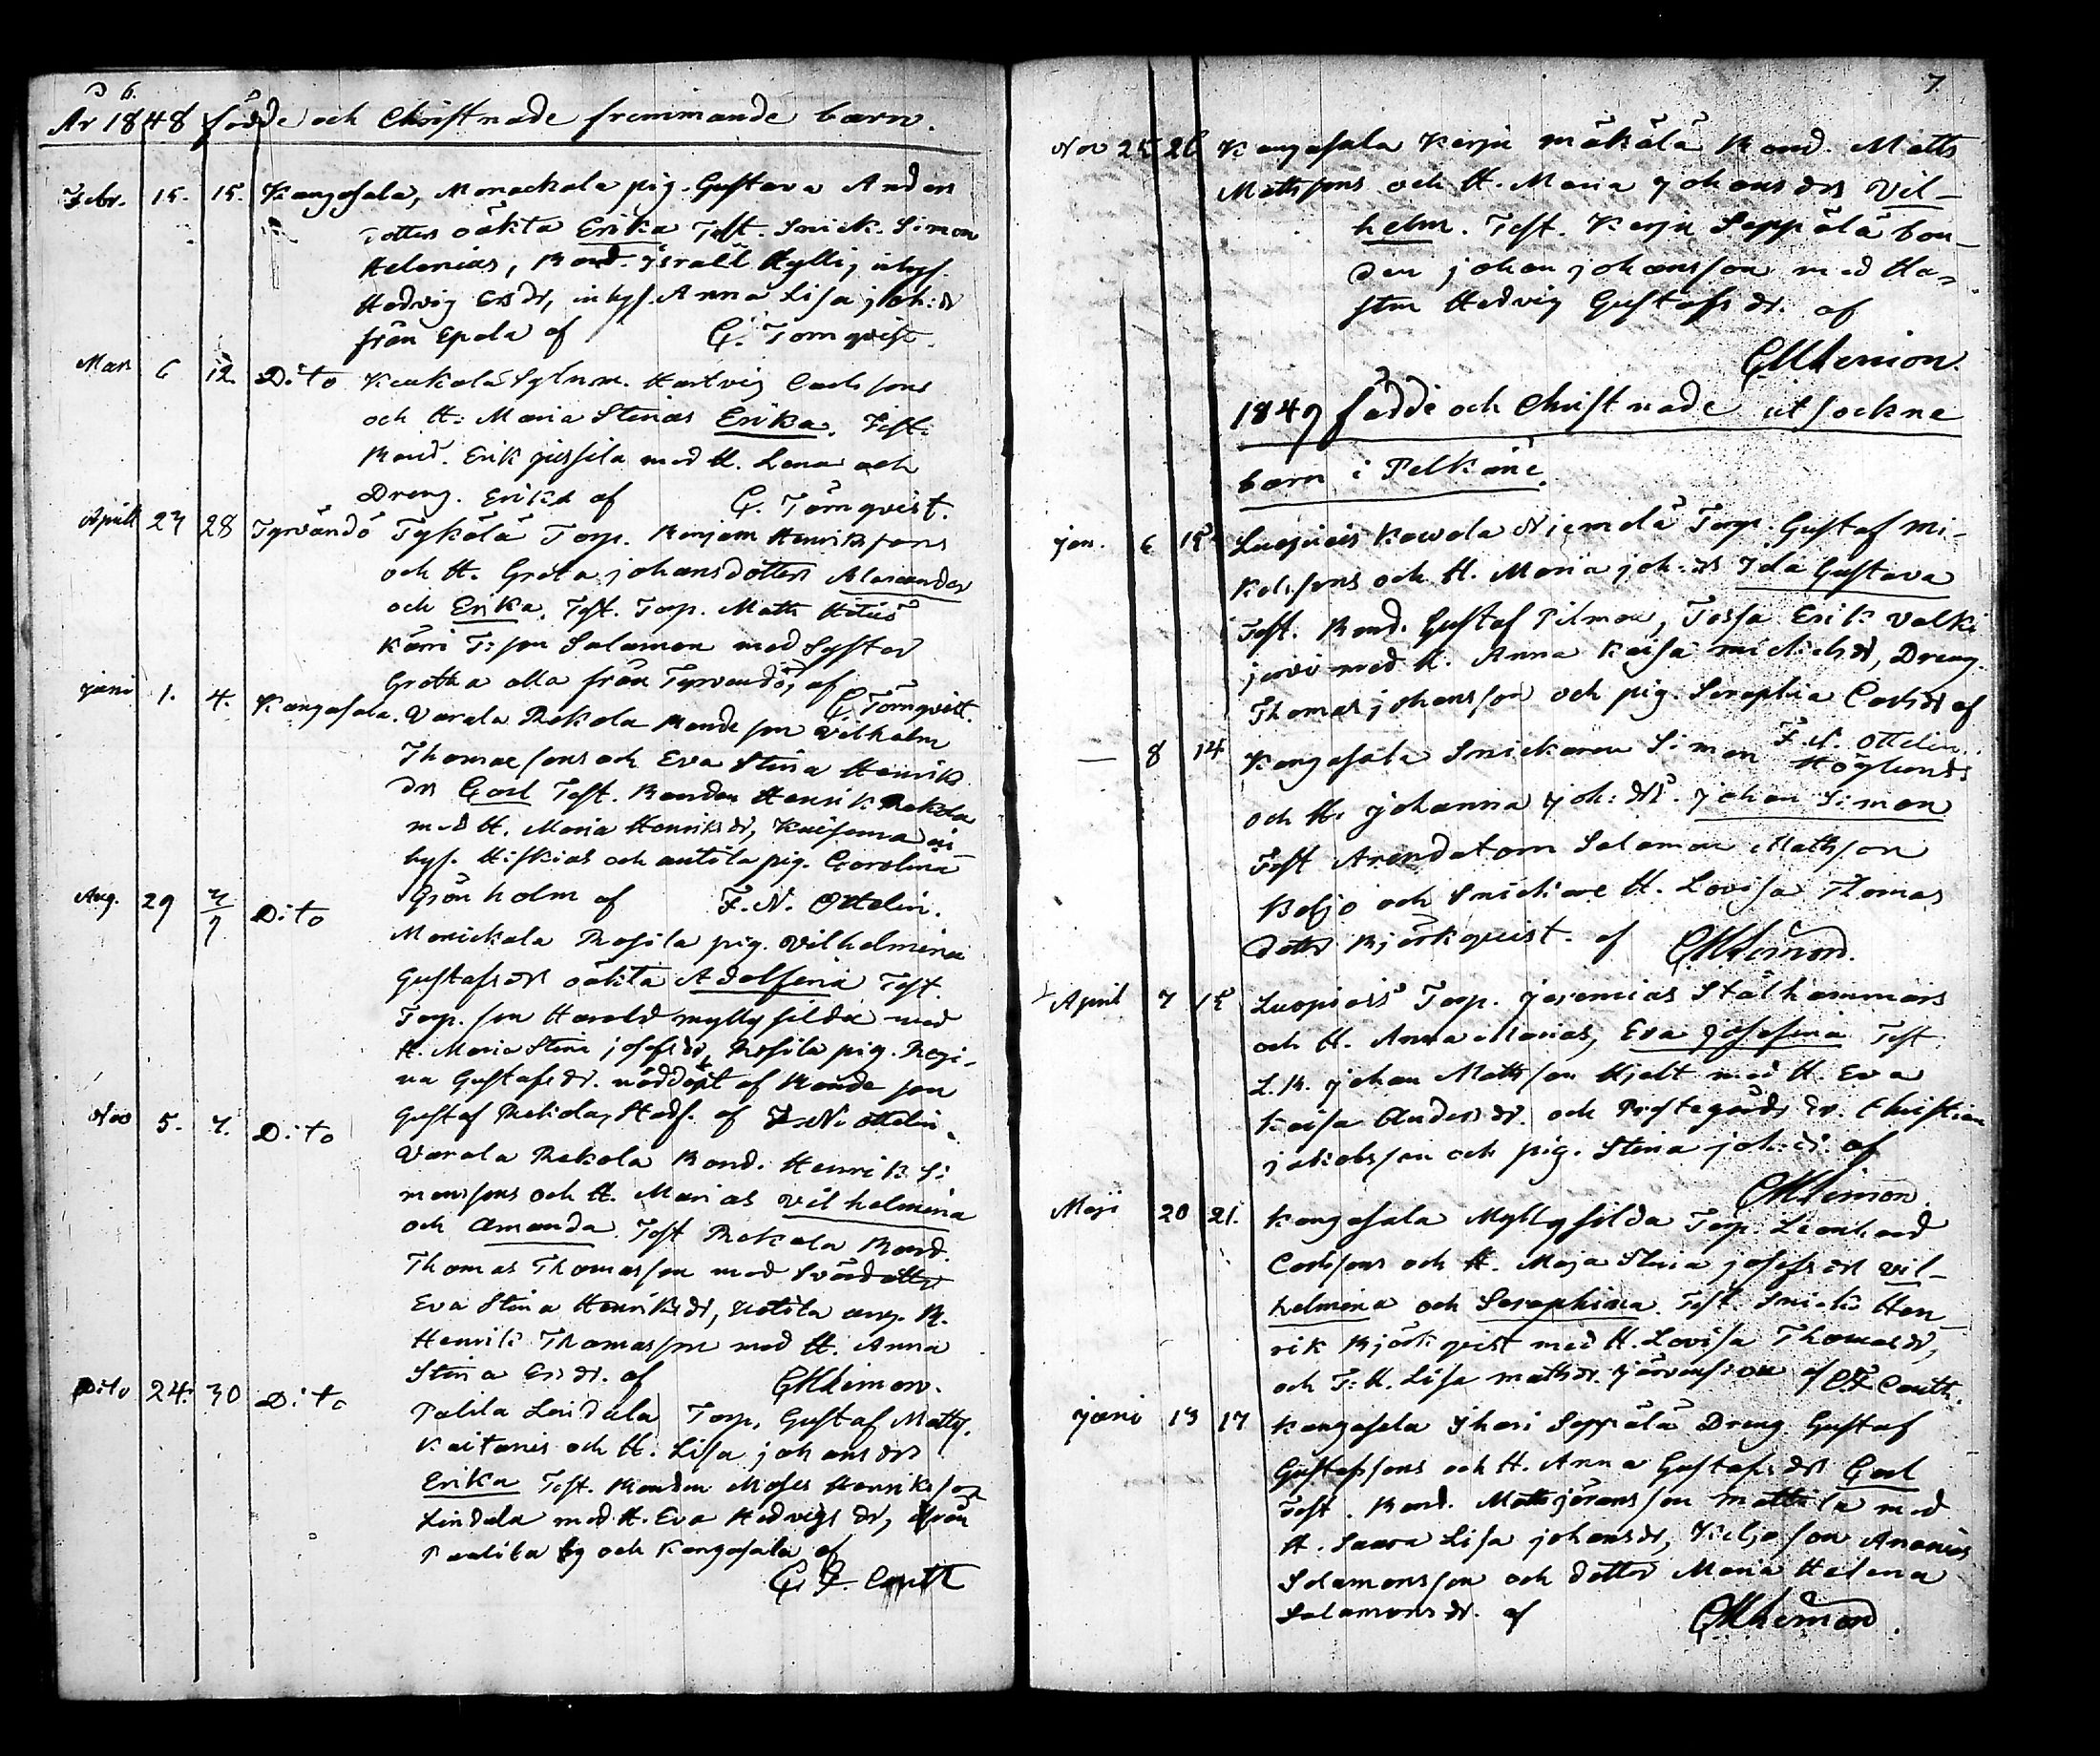 6.
År 1848 födde och Christnade fremmande barn.
Febr. 15. 15. Kangasala, Monackala pig. Gustava Anders
dotters oäkta Erika Test. Snick. Simon
Helenius, Bond. Israel Hylli, inhys.
Hedvig Ersdr, inhys. Anna Lisa joh:dr
från Epola af G. Törnqvist.
Mars 6 12. Dito Keukala Sytnm. Hartvig Carlssons
och H. Maria Stinas Erika. Test.
Bond. Erik jussila med H. Lena och
Dreng. Erik af G. Törnqvist.
April 27 28 Tyrvändö Tykölä Torp. Benjam Henrikssons
och H. Greta johansdotters Alexander
och Erika. Test. Torp. Matts
Kärri T: son Salamon med Syster
Gretha alla från Tyrvändö, af
G. Törnqvist.
juni 1. 4. Kangasala. Varala Rekola Bonde son Vilhelm
Thomassons och Eva Stina Henriks
drs Carl Test. Bonden Henrik Rekola
med H. Maria Henriksdr, in
hys. Hiskias och antila pig. Carolina
Grönholm af F. N. Ottelin.
Aug. 29 3/9 Dito
Monickala Rosila pig. Vilhelmina
Gustafsdrs oäkta Adolfina Test.
Torp. son Harald myllysilda med
H. Maria Stina josefsdr, Rosila pig. Regi-
na Gustafsdr. nöddöpt af Bonde son
Gustaf Rekola, Stadf. af F. N. Ottelin.
Nov 5. 7. Dito
Varala Rekola Bond. Henrik Si
monssons och H. Marias Vilhelmina
och Amanda. Test Rekola Bond.
Thomas Thomasson med Svärdotter
Eva Stina Henriksdr, B.
Henrik Thomasson med H. Anna
Stina Ersdr. af
Dito 24. 30 Dito
Palila Lindula Torp. Gustaf Matts.
Kaitanis och H. Lisa johansdrs
Erika Test. Bonden Moses Henriksson
Lindula med H. Eva Hedvigs dr, från
och Kangasala af
7
Nov 25 26 Kangasala Kerju mäkälä Bond. Matts
Mattssons och H. Maria johansdrs Vil-
helm. Test. Kerju Seppälä bon-
den johan johansson med Hu-
strn Hedvig Gustafsdr. af
1849 födde och Christnade utsockne
barn i Pelkäne.
jan. 6 15. Luopiois Kowala Niemelä Torp. Gustaf Mi-
kelssons och H. Maria joh:drs Ida Gustava
Test. Bond. Gustaf Pilmon, Erik Valke
jervi med H. Anna Kaisa michelsdr, Dreng.
Thomas johansson och pig. Seraphia Carlsdr af
F. N. Ottelin.
— 8 14 Kangasala Snickaren Simon Höglunds
och H. johanna joh:drs. johan Simon
Test Arendatorn Salamon Mattsson
och Snickare H. Lovisa Thomas
dotter Björkqvist. af
April 7 15 Luopiois Torp. jeremias Stålhammars
och H. Anna Marias, Eva josefina Test
L.B. johan Mattsson Hjelt med H. Eva
Kaisa Andersdr. och Prstegårds dr. Christian
jakobsson och pig. Stina joh:dr. af
Maji 20 21. Kangasala Myllysilda Torp. Leonhard
Carlssons och H. Maja Stina josefsdrs Vil-
helmina och Seraphina. Test. Snick. Hen-
rik Björkqvist med H. Lovisa Thomasdr,
och T: H. Lisa mattsdr. af
juni 13 17 Kangasala Ihari Seppälä Dreng Gustaf
Gustafssons och H. Anna Gustafsdrs Carl
Test. Bond. Matts jöransson Mattila med
H. Saara Lisa johansdr, son Ananias
Salamonsson och dotter Maria Helena
Salamonsdr. af